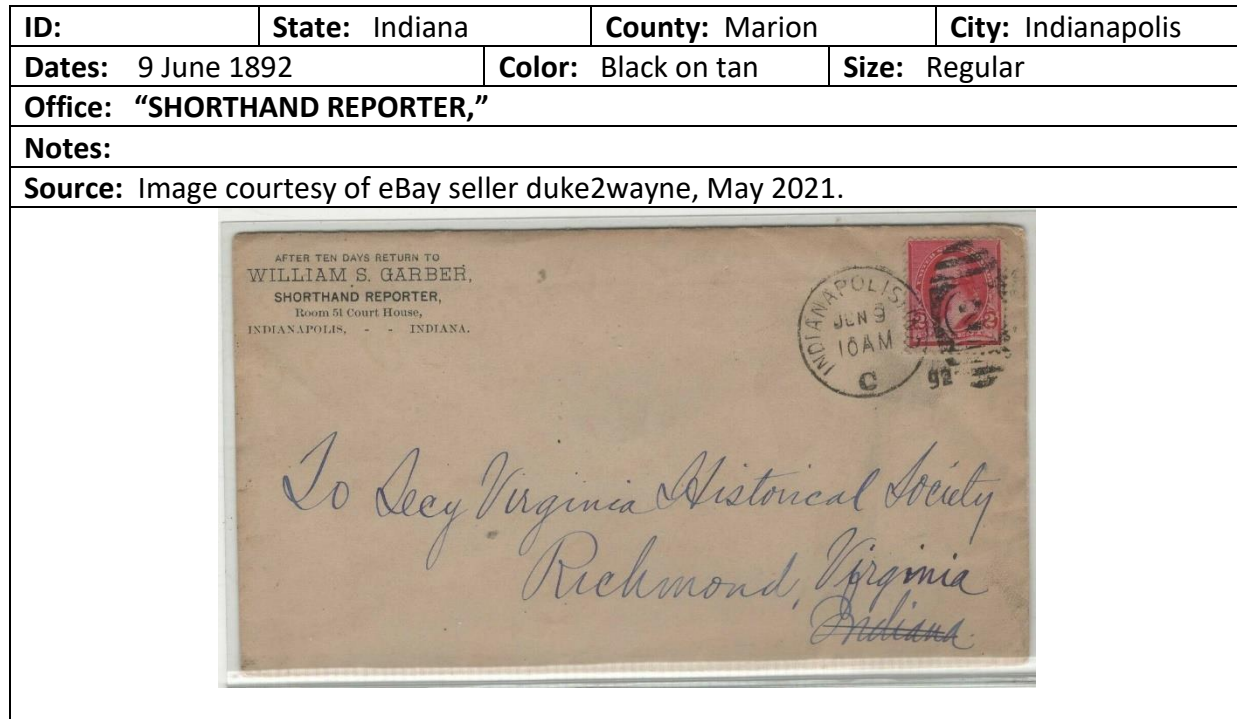 ID: State: Indiana County: Marion City: Indianapolis
Dates: 9 June 1892 Color: Black on tan Size: Regular
Office: “SHORTHAND REPORTER,”
Notes:
Source: Image courtesy of eBay seller duke2wayne, May 2021.
AFTER TEN DAYS RETURN TO
WILLIAM S. GARBER,
SHORTHAND REPORTER,
Room 51 Court House,
INDIANAPOLIS, - - INDIANA.
INDIANAPOLIS
JUN 9
10AM
C
92
2
To Secy Virginia Historical Society
Richmond, Virginia
Indiana